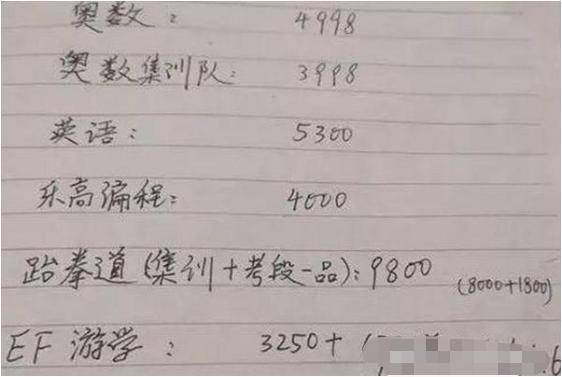 奥数： 4998
奥数集训队： 3998
英语： 5300
乐高编程： 4000
跆拳道(集训+考段一品)：9800 (8000+1800)
EF 游学： 3250+